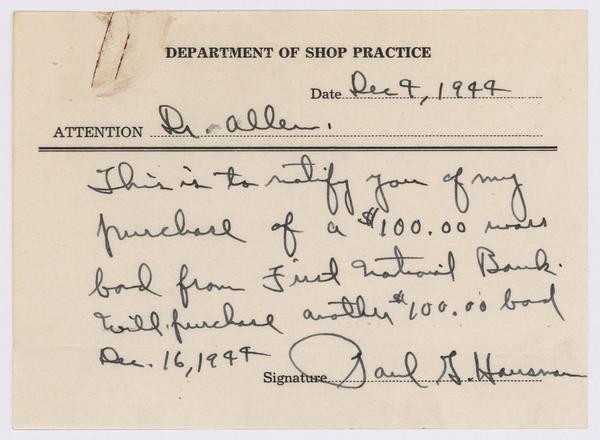 DEPARTMENT OF SHOP PRACTICE
Date Dec 9, 1944
ATTENTION Dr. Allen.
This is to notify you of my
purchase of a $100.00 wars
bond from First National Bank.
Will purchase another $100.00 bond
Dec. 16, 1944
Signature Paul G. Hausman